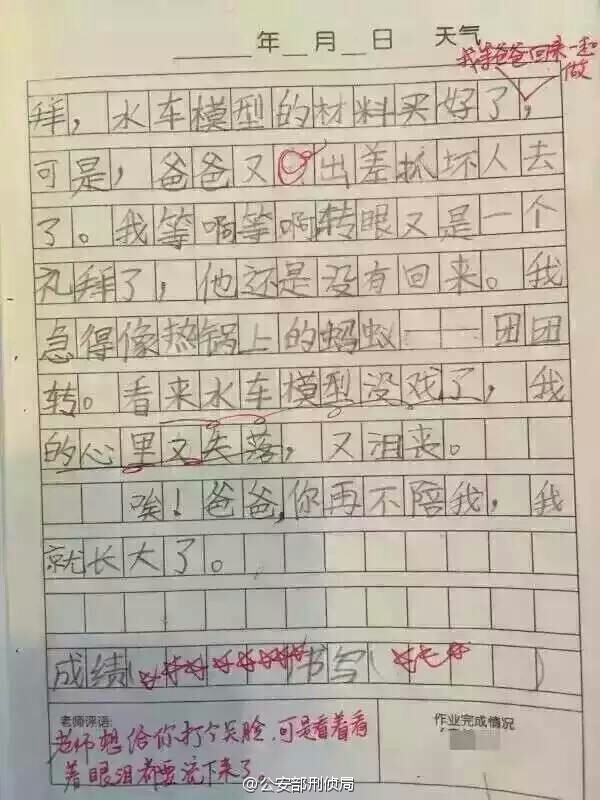 年 月 日 天气
我等爸爸回来一起做
拜，水车模型的材料买好了，
可是，爸爸又出差抓坏人去
了。我等啊等啊转眼又是一个
礼拜了，他还是没有回来。我
急得像热锅上的蚂蚁——团团
转。看来水车模型没戏了，我
的心里又失落，又沮丧。
唉！爸爸，你再不陪我，我
就长大了。
成绩( 书写( )
老师评语：
老师想给你打个笑脸，可是看着看
着眼泪都要流下来了。
作业完成情况
@公安部刑侦局